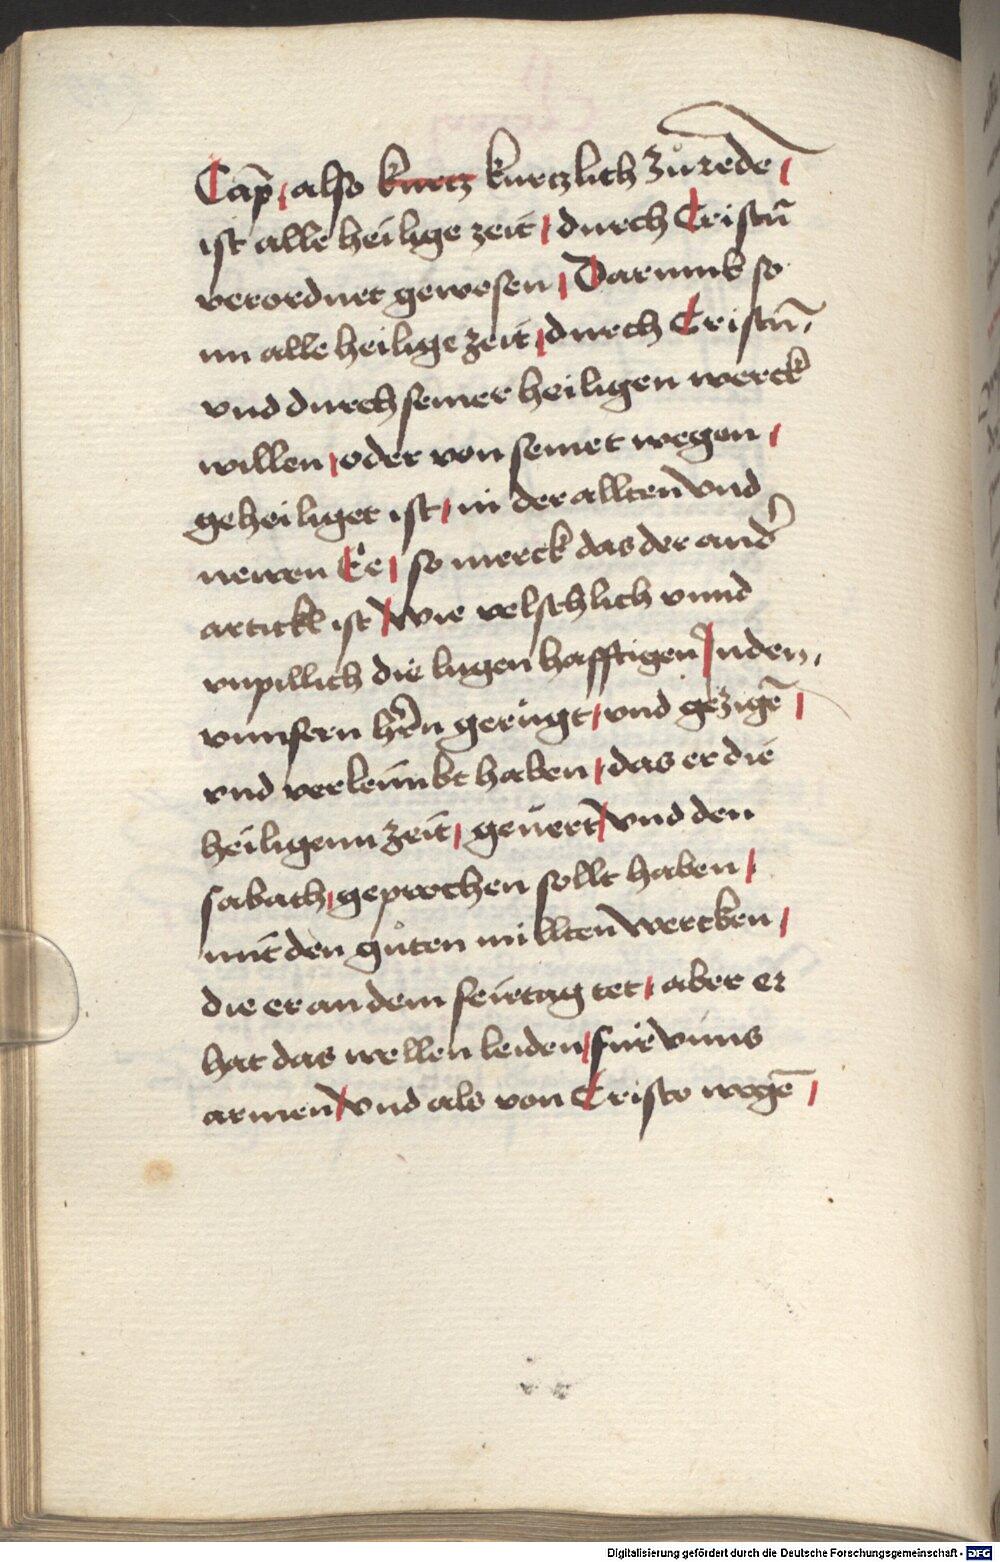 Cap̄ also kurtz kurtzlich zů rede
ist alle heilige zeit durch Cristū
verordnet gewesen Darumb so
nu alle heilige zeit durch Cristū
vnd durch seiner heiligen werck
willen oder von seinet wegen
geheiliget ist in der allten vnd
newen Ee so merck das der and͛
artickl ist wie velschlich vnnd
vnpillich die lugenhafftigen Juden
vnnsern hr̄n gerügt vnd gezigē
vnd verleümbt haben das er die
heiligenn zeit geüert vnd den
sabath geprochen sollt haben
mit den gůten millten wercken
die er an dem feirtag tet aber er
hat das wellen leiden für vnns
armen vnd als von Cristo wegē
Digitalisierung gefördert durch die Deutsche Forschungsgemeinschaft - DFG